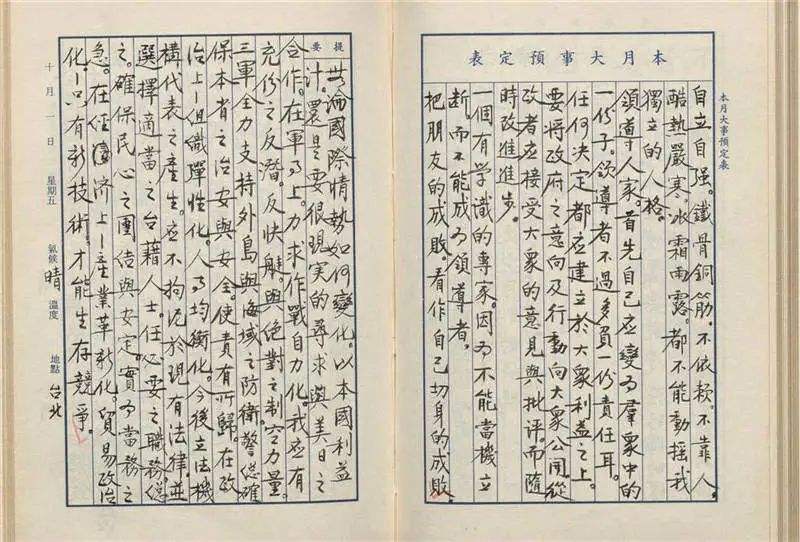 本月大事預定表
本月大事預定表
自立自强。鐵骨銅筋。不依赖。不靠人。
酷熱嚴寒。冰霜雨露。都不能動摇我
獨立的人格。
領導人家。首先自己应變为羣眾中的
一份子。領導者不過多負一份責任耳。
任何决定都应建立於大眾利益之上。
要将政府之意向及行動向大眾公開從
政者应接受大眾的意見與批评。而隨
時改進進步。
一個有学識的專家。因为不能當機立
断。而不能成为領導者。
把朋友的成敗。看作自己切身的成敗。
提要
十月一日 星期五 氣候 晴 溫度 地點 台北
無論國際情勢如何變化。以本國利益
計。還是要很現实的尋求與美日之
合作。在軍事上。力求作戰自力化。我应有
充份之反潛。反快艇。與绝對之制空力量。
三軍全力支持外島與海域之防衛。警总確
保本省之治安與安全。使責有所歸。在政
治上—组織彈性化。人事均衡化。今後立法機
構代表之產生。应不拘泥於現有法律。並
選擇適當之台籍人士。任必要之職務
之。確保民心之團结與安定。實为當務之
急。在經濟上—產業革新化。貿易政治
化。—只有新技術。才能生存競爭。